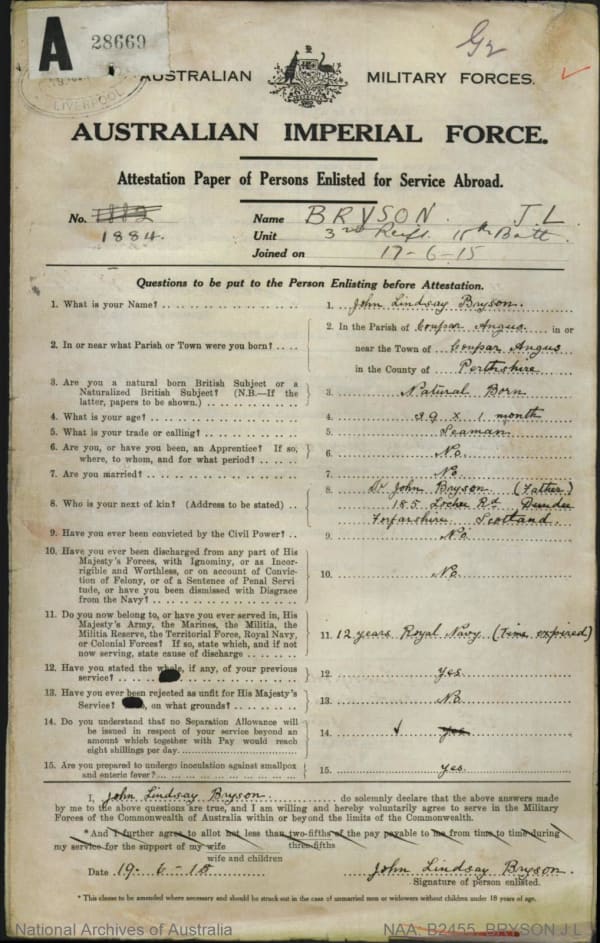 A 28669
LIVERPOOL
AUSTRALIAN MILITARY FORCES.
AUSTRALIAN IMPERIAL FORCE.
Attestation Paper of Persons Enlisted for Service Abroad.
No. 1882 Name BRYSON. J. L
1884. Unit 3rd Reifs. 15th Batt.
Joined on 17-6-15
Questions to be put to the Person Enlisting before Attestation.
1. What is your Name? 1. John Lindsay Bryson.
2. In or near what Parish or Town were you born? 2. In the Parish of Coupar Angus in or
near the Town of Coupar Angus
in the County of Perthshire
3. Are you a natural born British Subject or a
Naturalized British Subject? (N.B.—If the
latter, papers to be shown.) 3. Natural Born
4. What is your age? 4. 39 x 1 month
5. What is your trade or calling? 5. Seaman
6. Are you, or have you been, an Apprentice? If so,
where, to whom, and for what period? 6. No.
7. Are you married? 7. No
8. Who is your next of kin? (Address to be stated) 8. Dr John Bryson (Father)
185 Lochee Rd Dundee
Forfarshire Scotland.
9. Have you ever been convicted by the Civil Power? 9. No.
10. Have you ever been discharged from any part of His
Majesty's Forces, with Ignominy, or as Incor-
rigible and Worthless, or on account of Convic-
tion of Felony, or of a Sentence of Penal Servi-
tude, or have you been dismissed with Disgrace
from the Navy? 10. No.
11. Do you now belong to, or have you ever served in, His
Majesty's Army, the Marines, the Militia, the
Militia Reserve, the Territorial Force, Royal Navy,
or Colonial Forces? If so, state which, and if not
now serving, state cause of discharge 11. 12 years Royal Navy (Time expired)
12. Have you stated the whole, if any, of your previous
service? 12. yes.
13. Have you ever been rejected as unfit for His Majesty's
Service? on what grounds? 13. No.
14. Do you understand that no Separation Allowance will
be issued in respect of your service beyond an
amount which together with Pay would reach
eight shillings per day. 14. yes
15. Are you prepared to undergo inoculation against smallpox
and enteric fever? 15. yes.
I, John Lindsay Bryson. do solemnly declare that the above answers made
by me to the above questions are true, and I am willing and hereby voluntarily agree to serve in the Military
Forces of the Commonwealth of Australia within or beyond the limits of the Commonwealth.
*And I further agree to allot not less than two-fifths of the pay payable to me from time to time during
three-fifths
my service for the support of my wife
wife and children
Date 19-6-15 John Lindsay Bryson.
Signature of person enlisted.
* This clause to be amended where necessary and should be struck out in the case of unmarried men or widowers without children under 18 years of age.
National Archives of Australia NAA: B2455, BRYSON J L